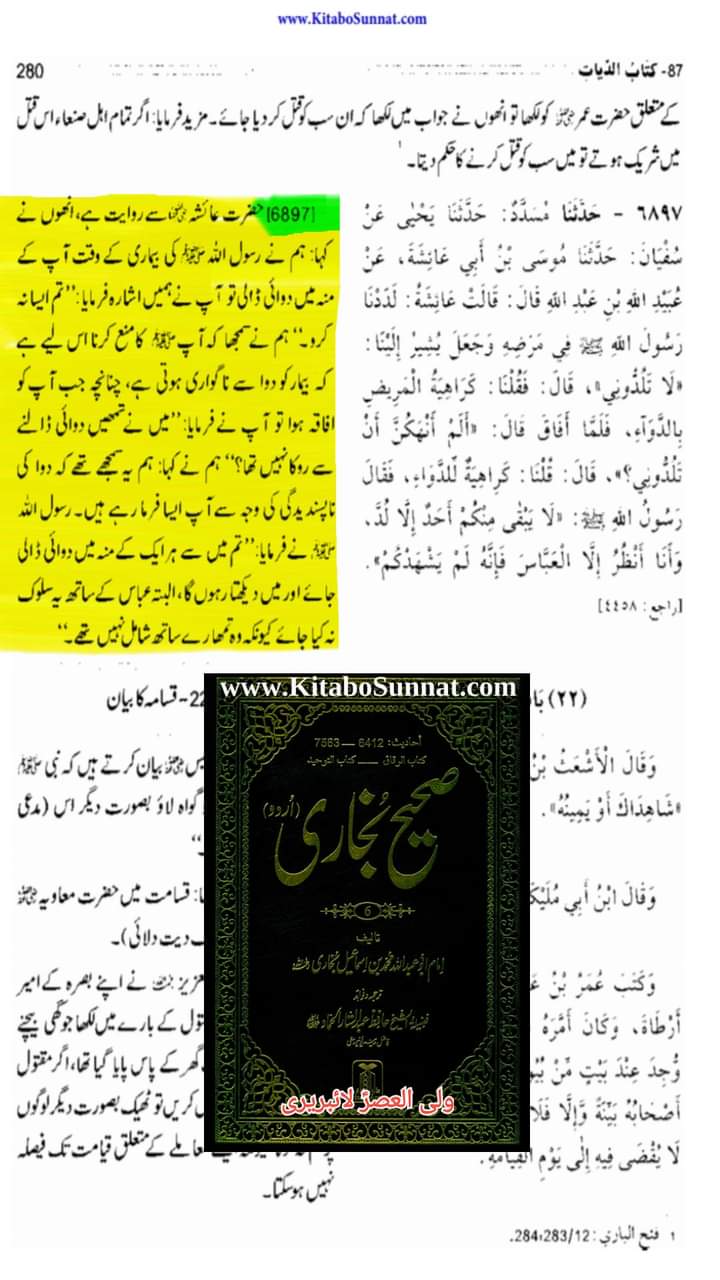 www.KitaboSunnat.com
87- كتاب الديات
280
کے متعلق حضرت عمر رضی اللہ عنہ کو لکھا تو انھوں نے جواب میں لکھا کہ ان سب کو قتل کر دیا جائے۔ مزید فرمایا: اگر تمام اہل صنعاء اس قتل
میں شریک ہوتے تو میں سب کو قتل کرنے کا حکم دیتا۔ ¹
٦٨٩٧ - حَدَّثَنَا مُسَدَّدٌ: حَدَّثَنَا يَحْيَى عَنْ
سُفْيَانَ: حَدَّثَنَا مُوسَى بْنُ أَبِي عَائِشَةَ، عَنْ
عُبَيْدِ اللهِ بْنِ عَبْدِ اللهِ قَالَ: قَالَتْ عَائِشَةُ: لَدَدْنَا
رَسُولَ اللهِ ﷺ فِي مَرَضِهِ وَجَعَلَ يُشِيرُ إِلَيْنَا:
«لَا تَلُدُّونِي»، قَالَ: فَقُلْنَا: كَرَاهِيَةُ الْمَرِيضِ
بِالدَّوَاءِ، فَلَمَّا أَفَاقَ قَالَ: «أَلَمْ أَنْهَكُنَّ أَنْ
تَلُدُّونِي؟»، قَالَ: قُلْنَا: كَرَاهِيَةٌ لِّلدَّوَاءِ، فَقَالَ
رَسُولُ اللهِ ﷺ: «لَا يَبْقَى مِنْكُمْ أَحَدٌ إِلَّا لُدَّ،
وَأَنَا أَنْظُرُ إِلَّا الْعَبَّاسَ فَإِنَّهُ لَمْ يَشْهَدْكُمْ».
[راجع: ٤٤٥٨]
[6897] حضرت عائشہ رضی اللہ عنہا سے روایت ہے، انھوں نے
کہا: ہم نے رسول اللہ ﷺ کی بیماری کے وقت آپ کے
منہ میں دوائی ڈالی تو آپ نے ہمیں اشارہ فرمایا: ’’تم ایسا نہ
کرو۔‘‘ ہم نے سمجھا کہ آپ ﷺ کا منع کرنا اس لیے ہے
کہ بیمار کو دوا سے ناگواری ہوتی ہے، چنانچہ جب آپ کو
افاقہ ہوا تو آپ نے فرمایا: ’’میں نے تمھیں دوائی ڈالنے
سے روکا نہیں تھا؟‘‘ ہم نے کہا: ہم یہ سمجھے تھے کہ دوا کی
ناپسندیدگی کی وجہ سے آپ ایسا فرما رہے ہیں۔ رسول اللہ
ﷺ نے فرمایا: ’’تم میں سے ہر ایک کے منہ میں دوائی ڈالی
جائے اور میں دیکھتا رہوں گا، البتہ عباس کے ساتھ یہ سلوک
نہ کیا جائے کیونکہ وہ تمھارے ساتھ شامل نہیں تھے۔‘‘
(٢٢) بَا
22- قسامہ کا بیان
وَقَالَ الْأَشْعَثُ بْنُ
«شَاهِدَاكَ أَوْ يَمِينُهُ».
وَقَالَ ابْنُ أَبِي مُلَيْكَ
وَكَتَبَ عُمَرُ بْنُ عَ
أَرْطَاةَ، وَكَانَ أَمَّرَهُ
وُجِدَ عِنْدَ بَيْتٍ مِّنْ بُيُو
أَصْحَابُهُ بَيِّنَةً وَّإِلَّا فَلَا
لَا يُقْضَى فِيهِ إِلَى يَوْمِ الْقِيَامَةِ.
بیان کرتے ہیں کہ نبی ﷺ
گواہ لاؤ بصورت دیگر اس (مدعی
قسامت میں حضرت معاویہ رضی اللہ عنہ
دیت دلائی)۔
عزیز نے اپنے بصرہ کے امیر
کے بارے میں لکھا جو گھی بیچنے
گھر کے پاس پایا گیا تھا، اگر مقتول
کریں تو ٹھیک بصورت دیگر لوگوں
معاملے کے متعلق قیامت تک فیصلہ
نہیں ہو سکتا۔
www.KitaboSunnat.com
احادیث: 6412 — 7563
کتاب الرقاق — کتاب التوحید
صحیح بخاری (اردو)
6
تالیف
امام ابو عبداللہ محمد بن اسماعیل بخاری
ولی العصرؑ لائبریری
1 فتح الباري: 283/12، 284.